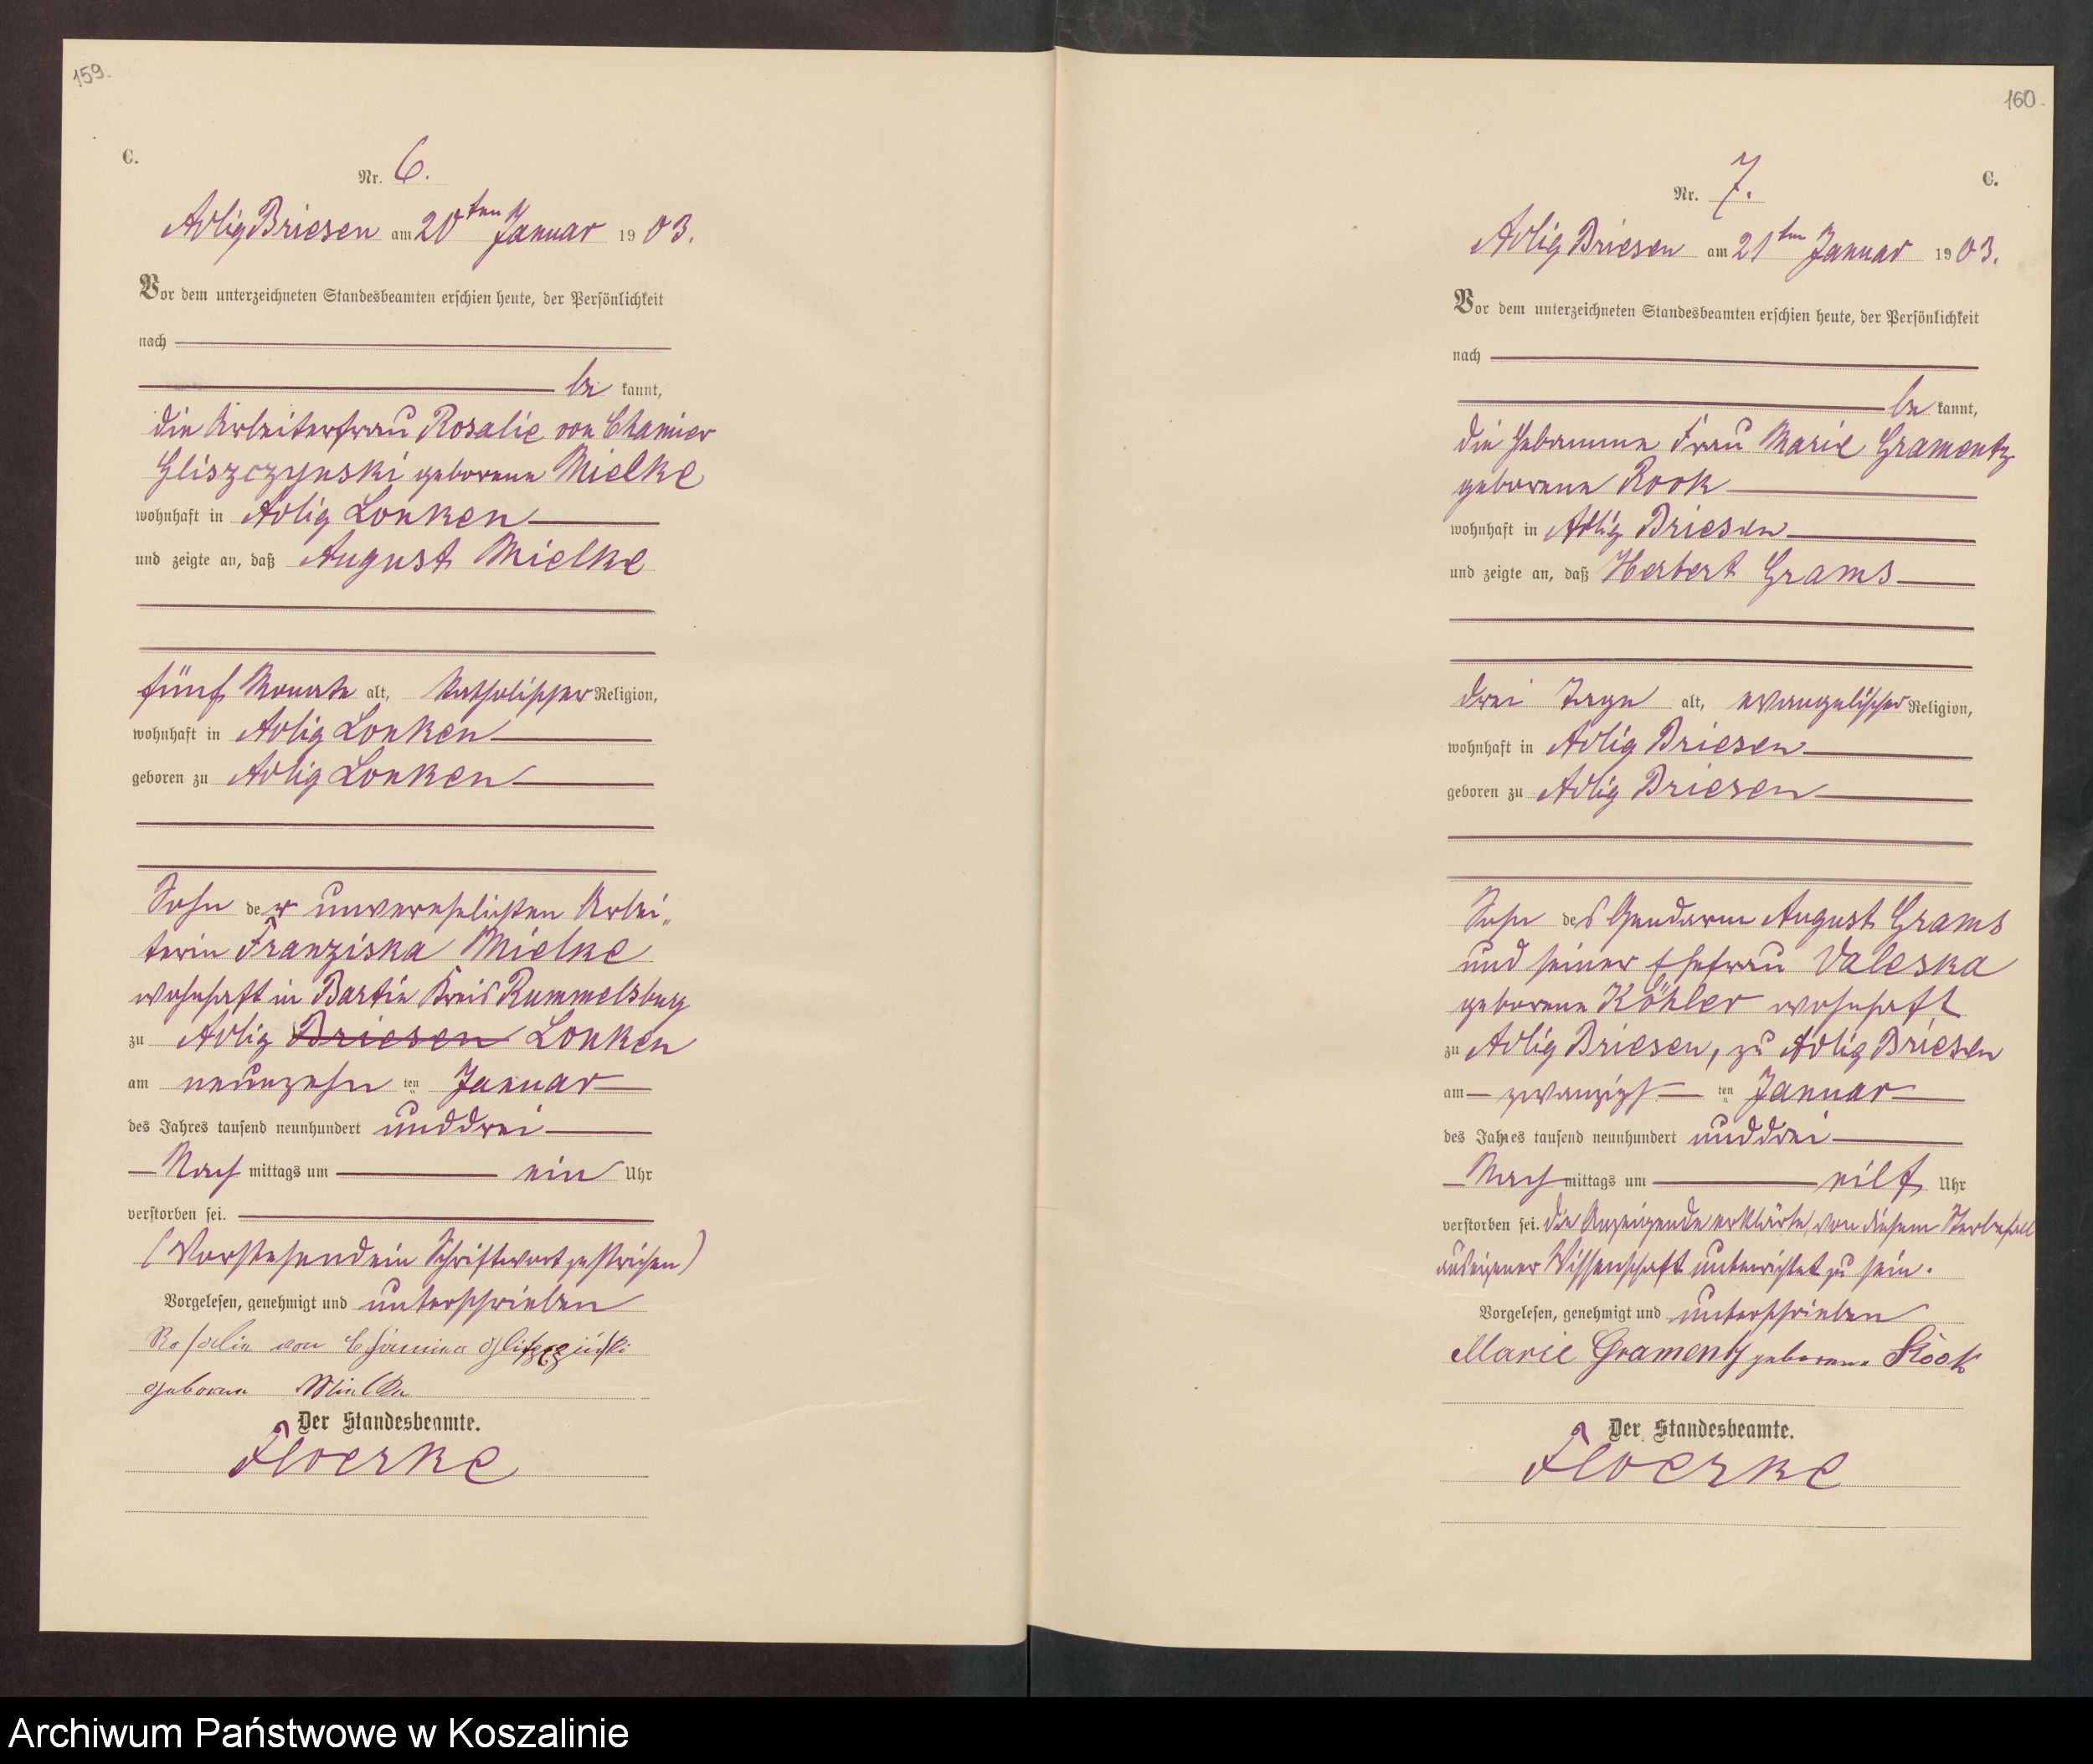 159.
C.
Nr. 6.
Adlig Briesen am 20ten Januar 1903.
Vor dem unterzeichneten Standesbeamten erschien heute, der Persönlichkeit
nach
be kannt,
die Arbeiterfrau Rosalie von Chamier
Gliszczynski geborene Mielke
wohnhaft in Adlig Lonken
und zeigte an, daß August Mielke
fünf Monate alt, katholischer Religion,
wohnhaft in Adlig Lonken
geboren zu Adlig Lonken
Sohn der unverehelichten Arbei„
terin Franziska Mielke
wohnhaft in Bartin Kreis Rummelsburg
zu Adlig Briesen Lonken
am neunzehn ten Januar
des Jahres tausend neunhundert unddrei
Nach mittags um ein Uhr
verstorben sei.
(Vorstehend ein Schriftwort gestrichen)
Vorgelesen, genehmigt und unterschrieben
Rosalie von Chamier
geborene Mielke
Der Standesbeamte.
Floerke
160.
C.
Nr. 7.
Adlig Briesen am 21ten Januar 1903.
Vor dem unterzeichneten Standesbeamten erschien heute, der Persönlichkeit
nach
be kannt,
die Hebamme Frau Marie Gramentz
geborene Rook
wohnhaft in Adlig Briesen
und zeigte an, daß Herbert Grams
drei Tage alt, evangelischer Religion,
wohnhaft in Adlig Briesen
geboren zu Adlig Briesen
Sohn des Gendarm August Grams
und seiner Ehefrau Valeska
geborene Köhler wohnhaft
zu Adlig Briesen, zu Adlig Briesen
am zwanzigs ten Januar
des Jahres tausend neunhundert unddrei
Nach mittags um eilf Uhr
verstorben sei. die Anzeigende erklärte, von diesem Sterbefall
aus eigener Wissenschaft unterrichtet zu sein.
Vorgelesen, genehmigt und unterschrieben
Marie Gramentz geborene Rook
Der Standesbeamte.
Floerke
Archiwum Państwowe w Koszalinie